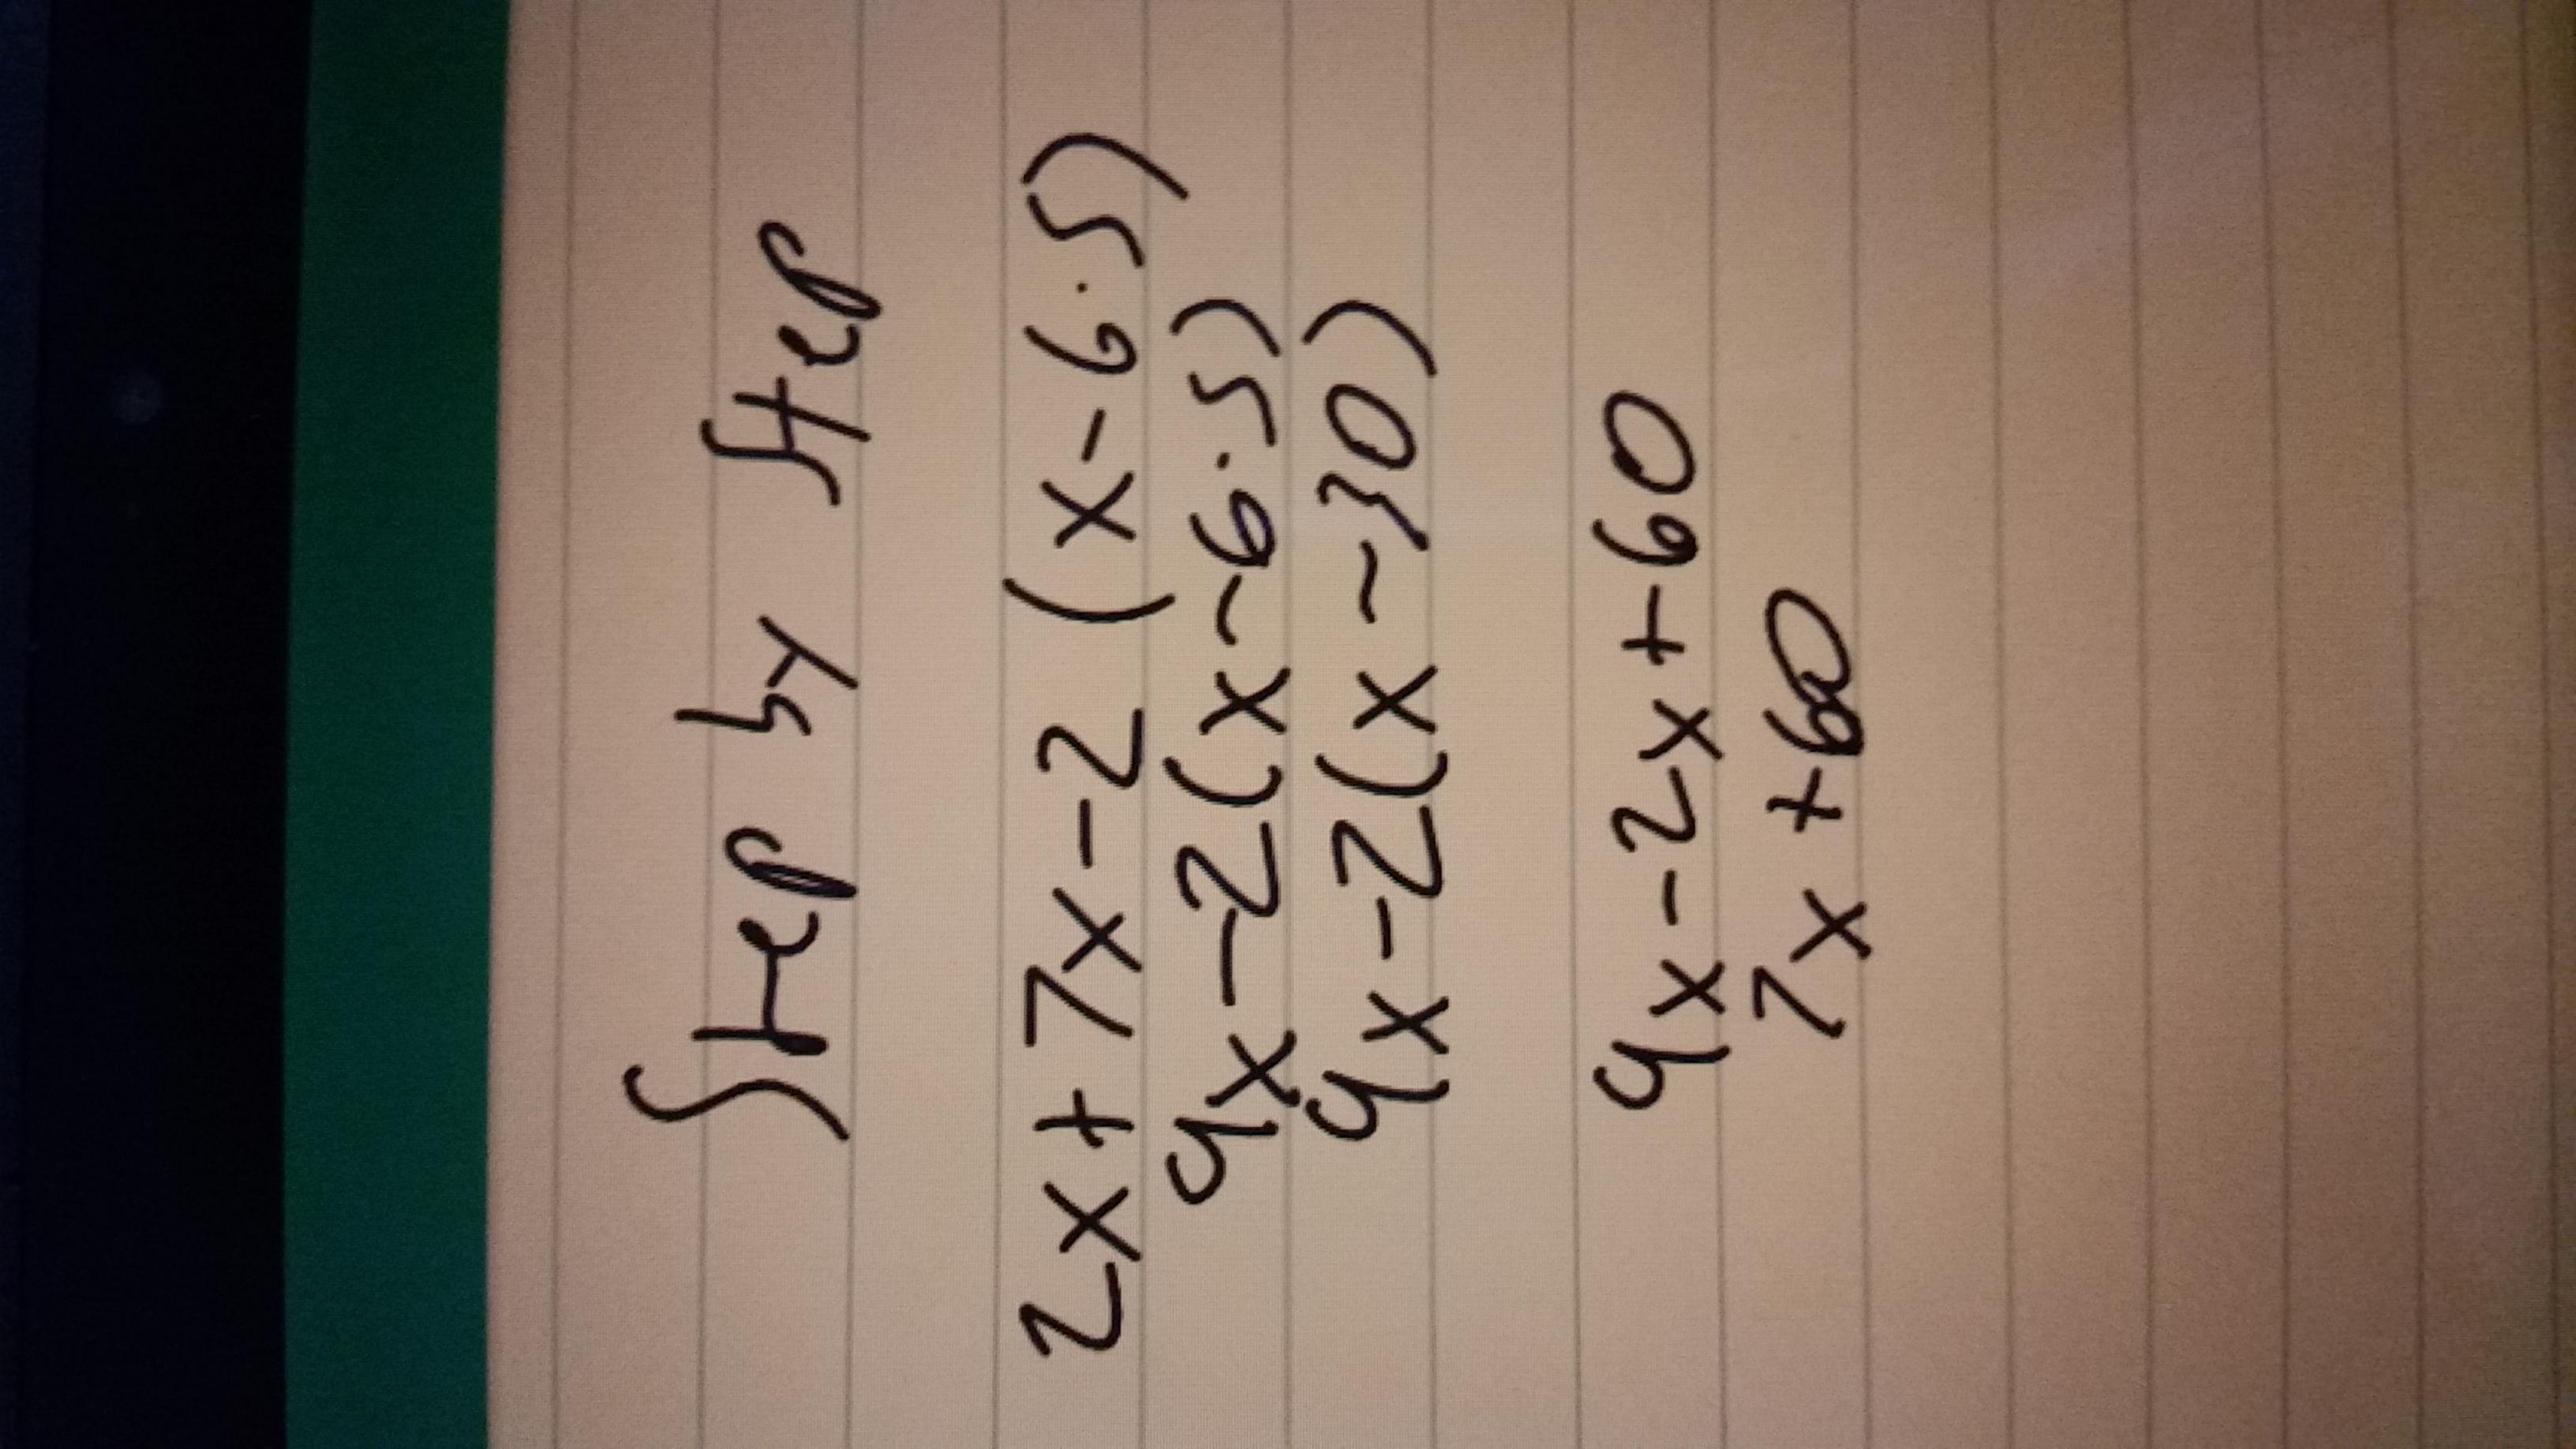 Step by Step
2x + 7x - 2 (x - 6 . 5)
9x - 2(x - 6.5)
9x - 2(x - 30)
9x - 2x + 60
7x + 60